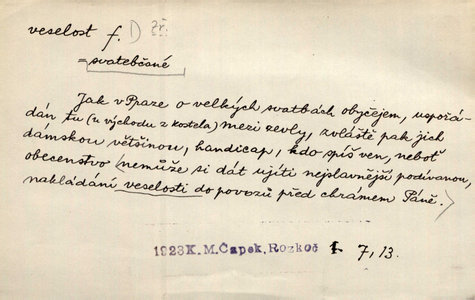 veselost f. D zř.
= svatebčané
Jak v Praze o velkých svatbách obyčejem, uspořá-
dán tu (u východu z kostela) mezi zevly, zvláště pak jich
dámskou většinou, handicap, kdo spíš ven, neboť
obecenstvo (nemůže si dát ujíti nejslavnější podívanou,
nakládání veselosti do povozů před chrámem Páně.)
1923 K. M. Čapek. Rozkoč 1. 7, 13.